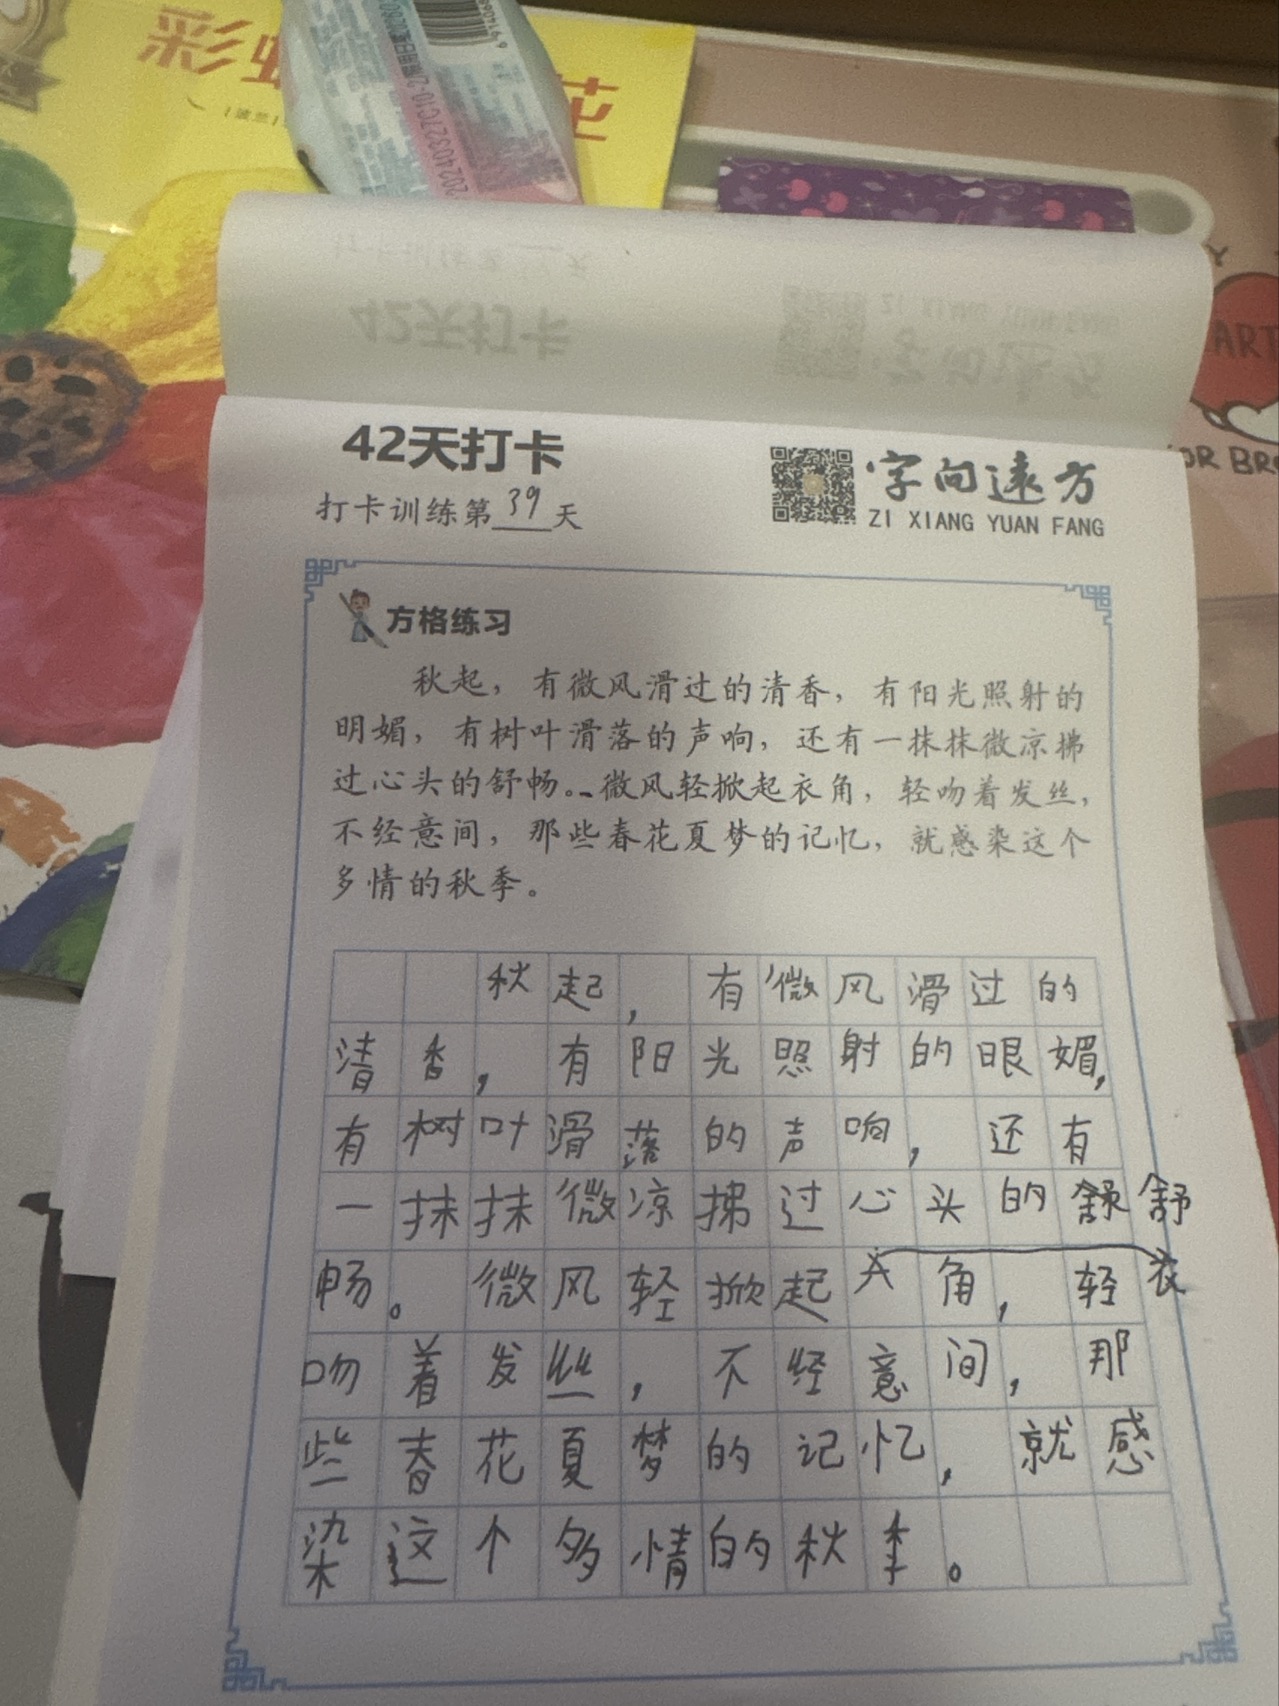 彩虹
花
20240327C10-2
42天打卡
打卡训练第39天
字向远方
ZI XIANG YUAN FANG
ART
OR BR
方格练习
秋起，有微风滑过的清香，有阳光照射的
明媚，有树叶滑落的声响，还有一抹抹微凉拂
过心头的舒畅。微风轻掀起衣角，轻吻着发丝，
不经意间，那些春花夏梦的记忆，就感染这个
多情的秋季。
秋起，有微风滑过的
清香，有阳光照射的眼媚，
有树叶滑落的声响，还有
一抹抹微凉拂过心头的舒
畅。微风轻掀起衣角，轻
吻着发丝，不经意间，那
些春花夏梦的记忆，就感
染这个多情的秋季。